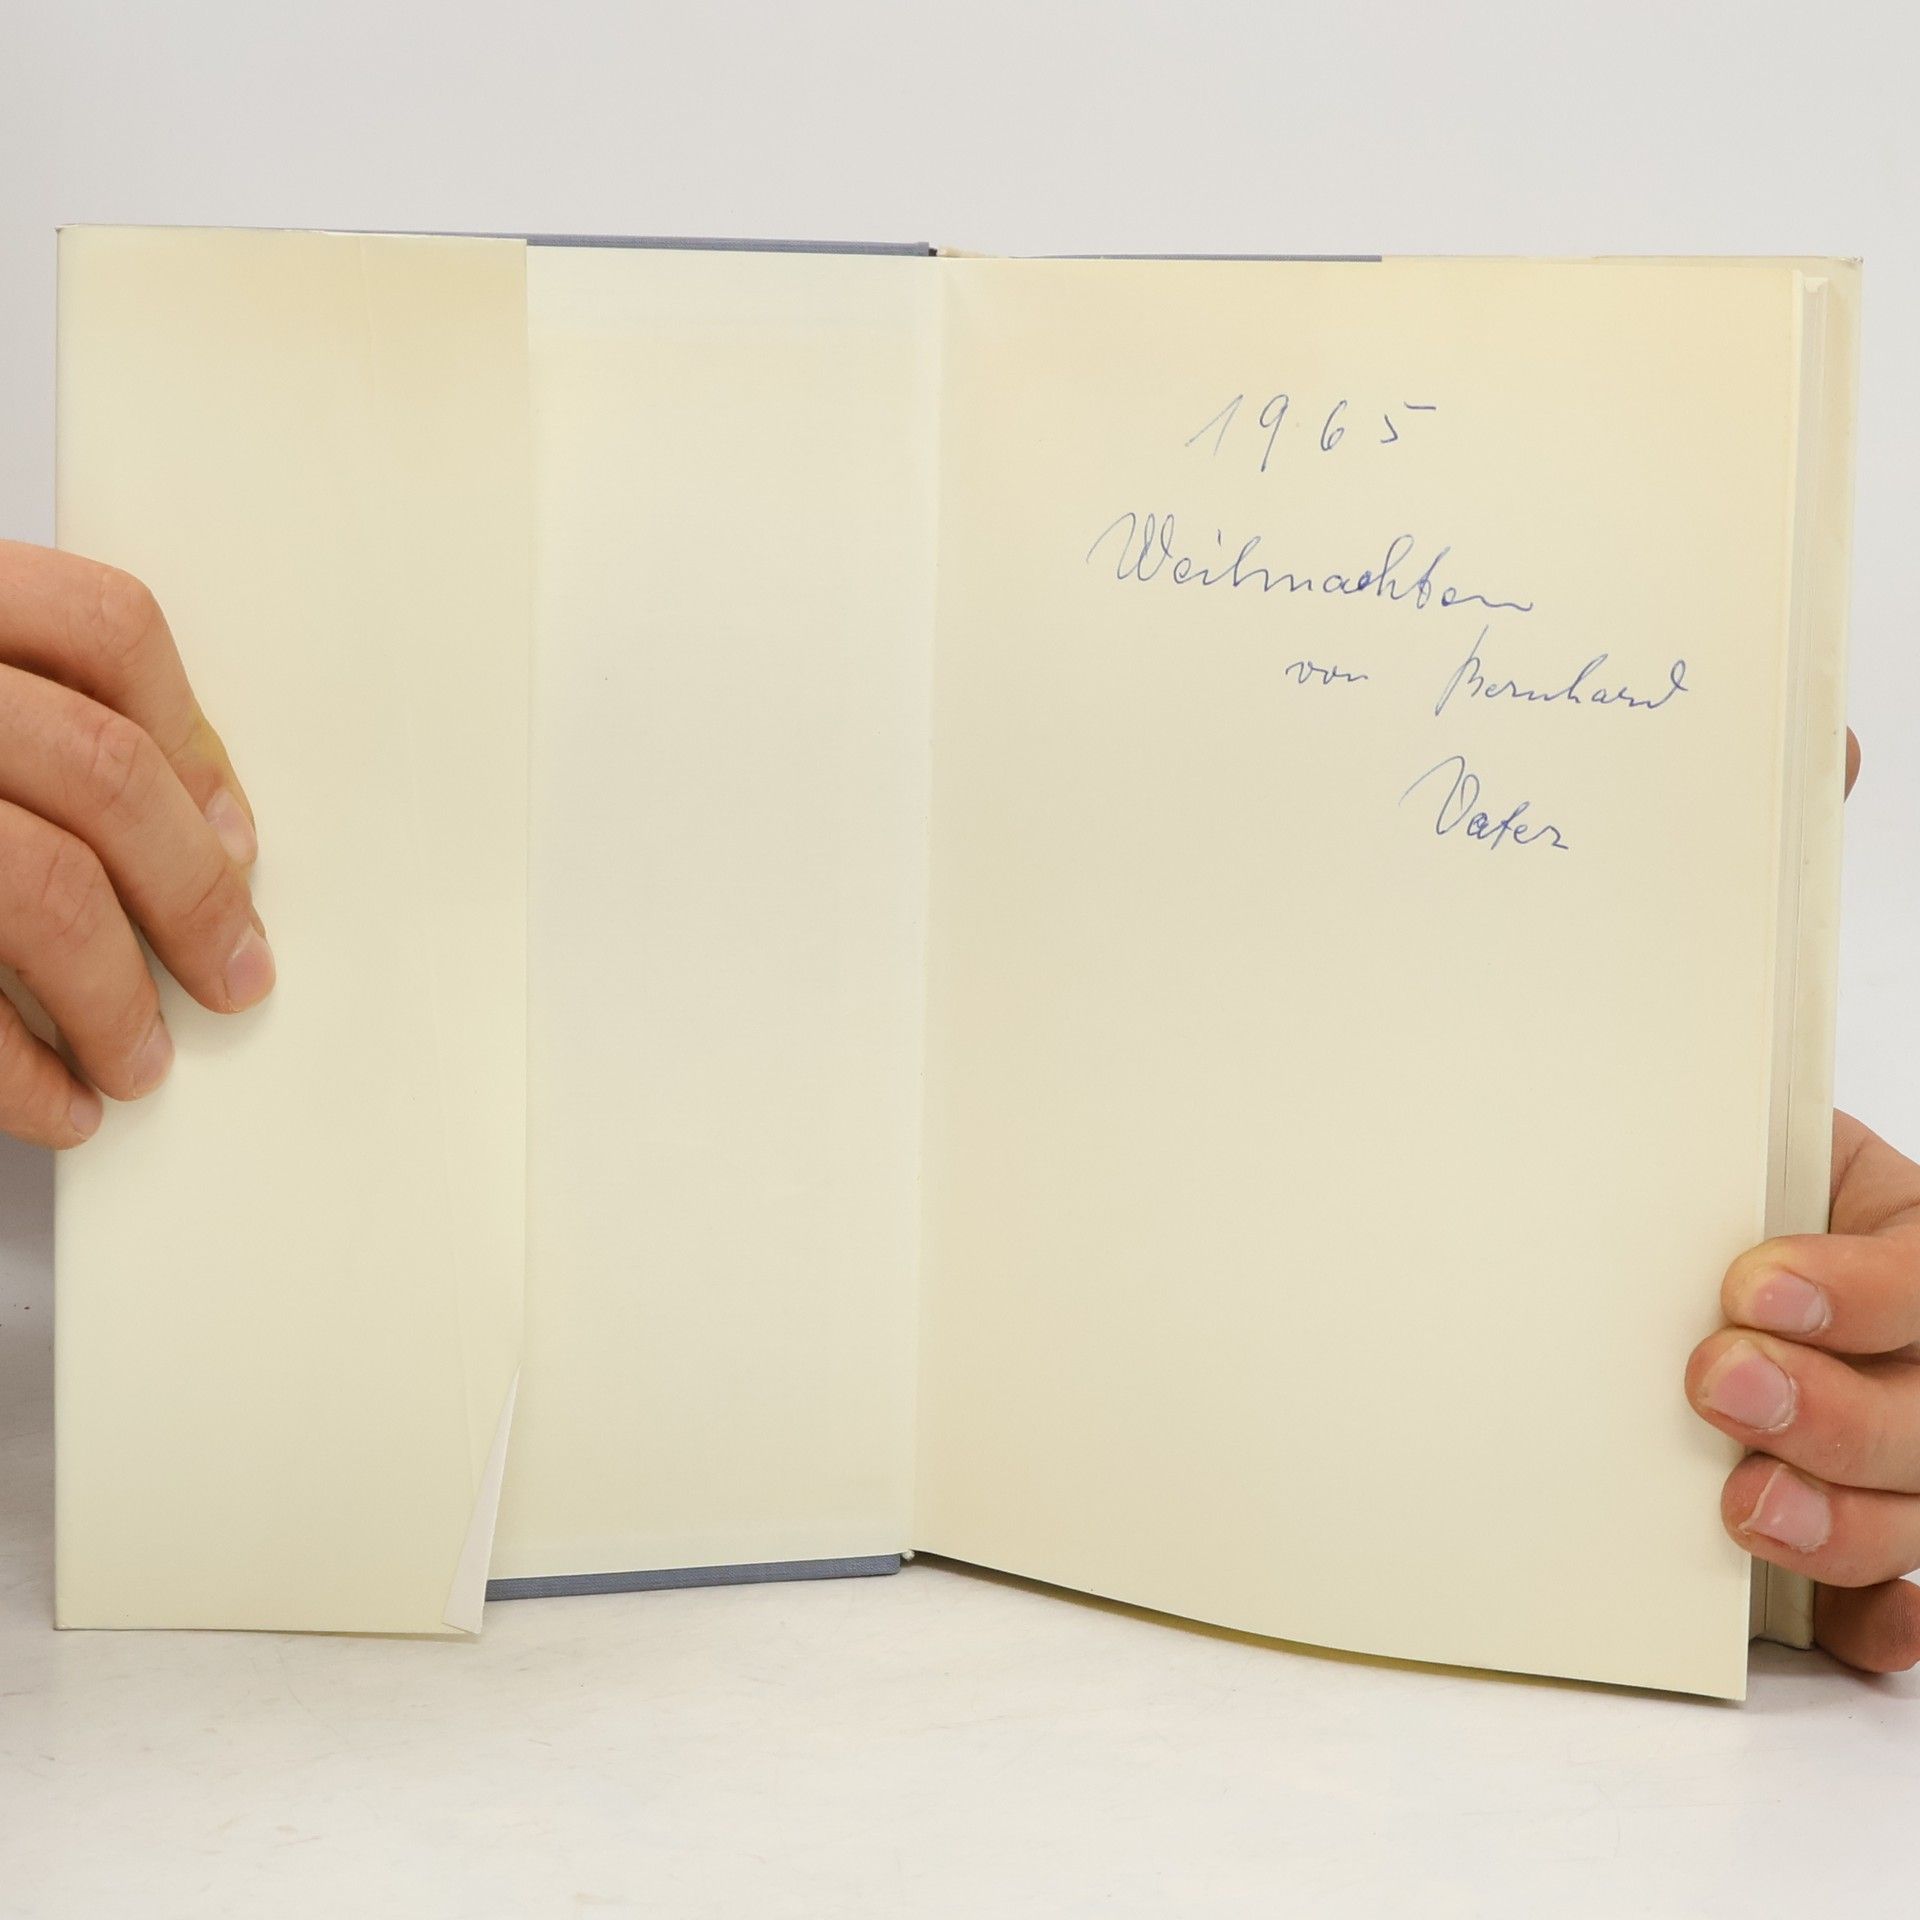 1965
Weihnachten
von Bernhard
Vater